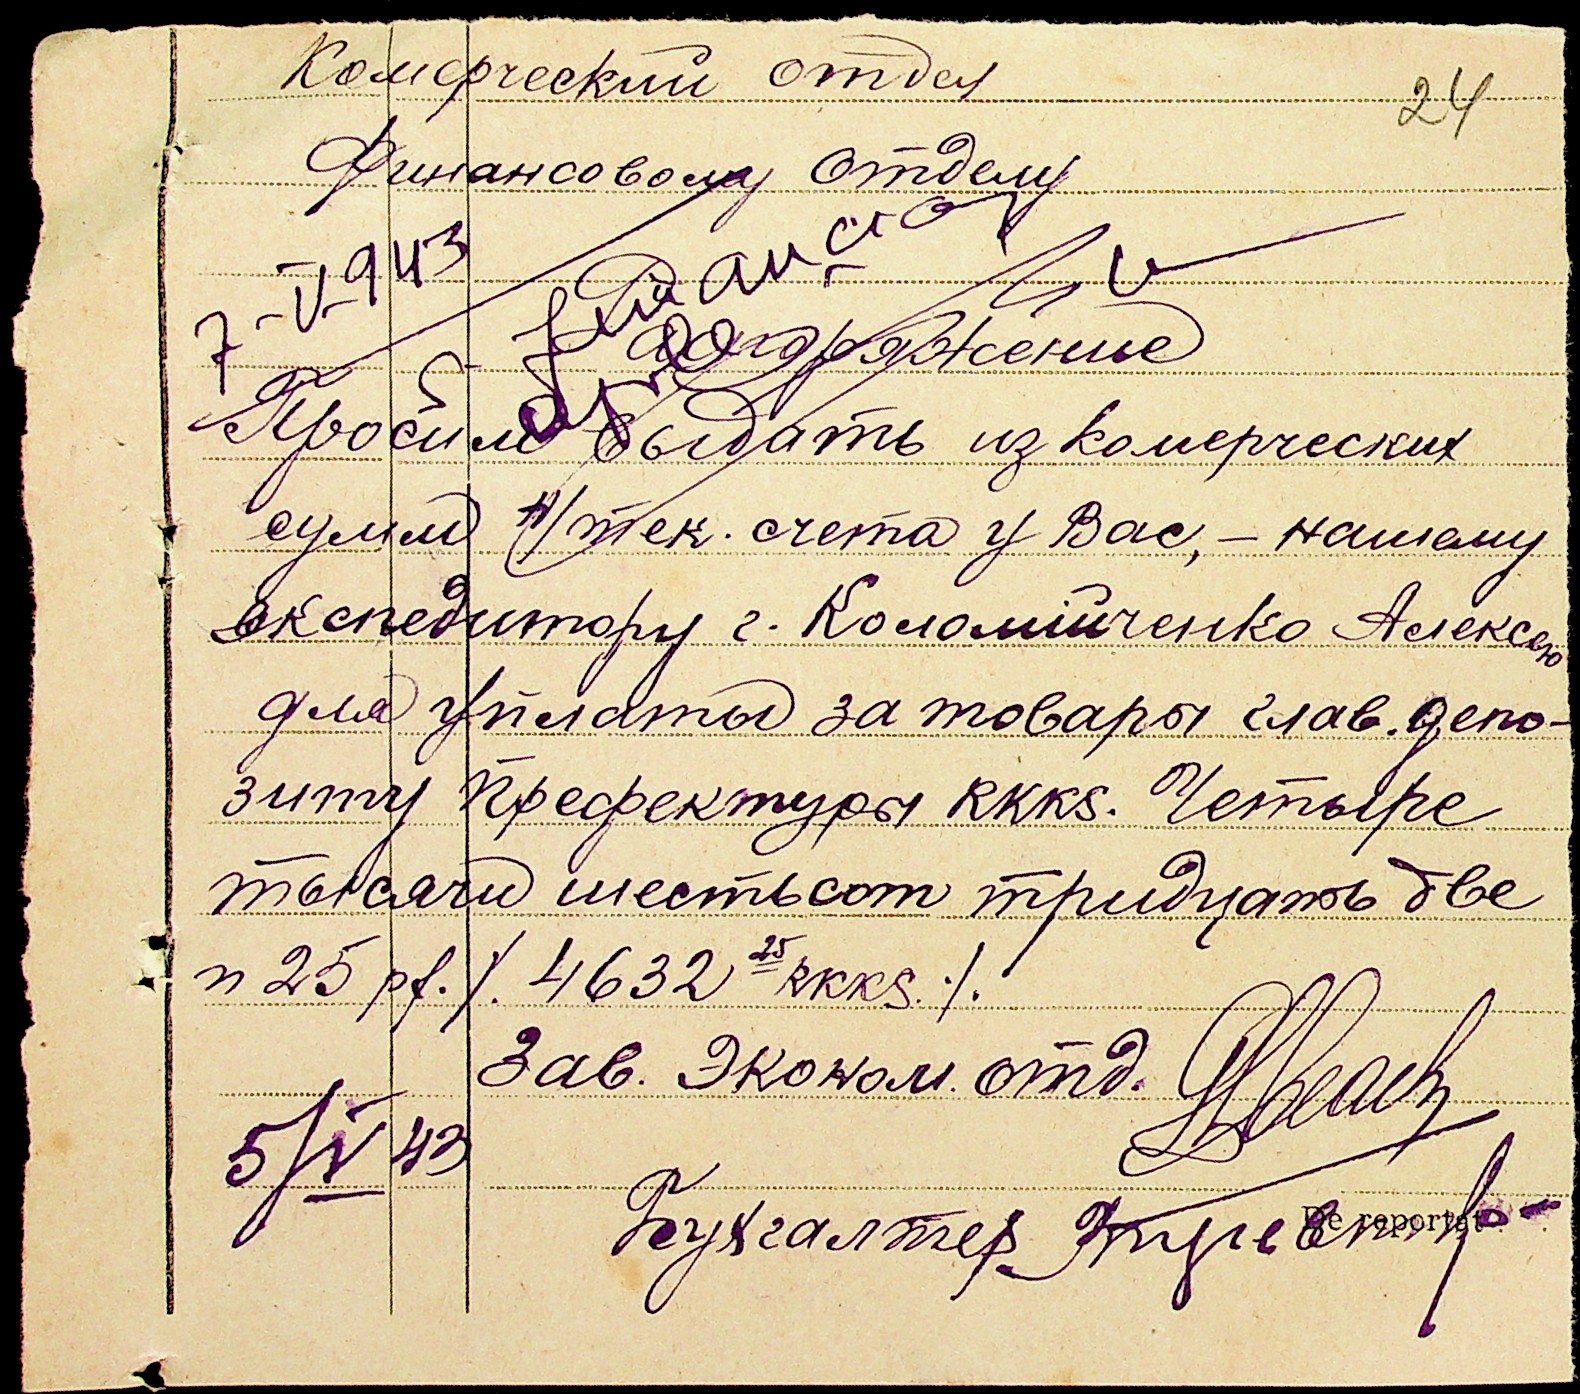 Комерческий отдел
24
Финансовому отделу
7-V-943
Просим выдать из комерческих
сумм н/тек. счета у Вас, – нашему
экспедитору г. Коломийченко Алексею
для уплаты за товары глав. депо-
зиту Префектуры RKKS. Четыре
тысячи шестьсот тридцать две
и 25 pf. /. 4632 25 RKKS. ./.
Зав. Эконом. отд.
5/V 43
Бухгалтер
De reportat